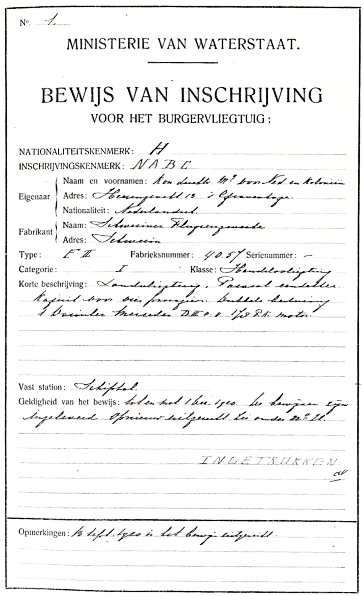 No. 1.
MINISTERIE VAN WATERSTAAT.
BEWIJS VAN INSCHRIJVING
VOOR HET BURGERVLIEGTUIG:
NATIONALITEITSKENMERK: H
INSCHRIJVINGSKENMERK: NABC
Eigenaar
Naam en voornamen: Kon Mij voor Ned en Koloniën
Adres: Heerengracht 13 's Gravenhage
Nationaliteit: Nederlandsch
Fabrikant
Naam: Schweriner Flugzeugwerke
Adres: Schwerin
Type: F II Fabrieksnummer: 4057 Serienummer: –
Categorie: I Klasse: Handelsvliegtuig
Korte beschrijving: Landvliegtuig.
voor vier
Mercedes D III motor.
Vast station: Schiphol
Geldigheid van het bewijs: tot en met 1 1920. bewijzen zijn
Opnieuw uitgereikt onder
INGETROKKEN
Opmerkingen: 13 Sept. 1920 is het bewijs uitgereikt